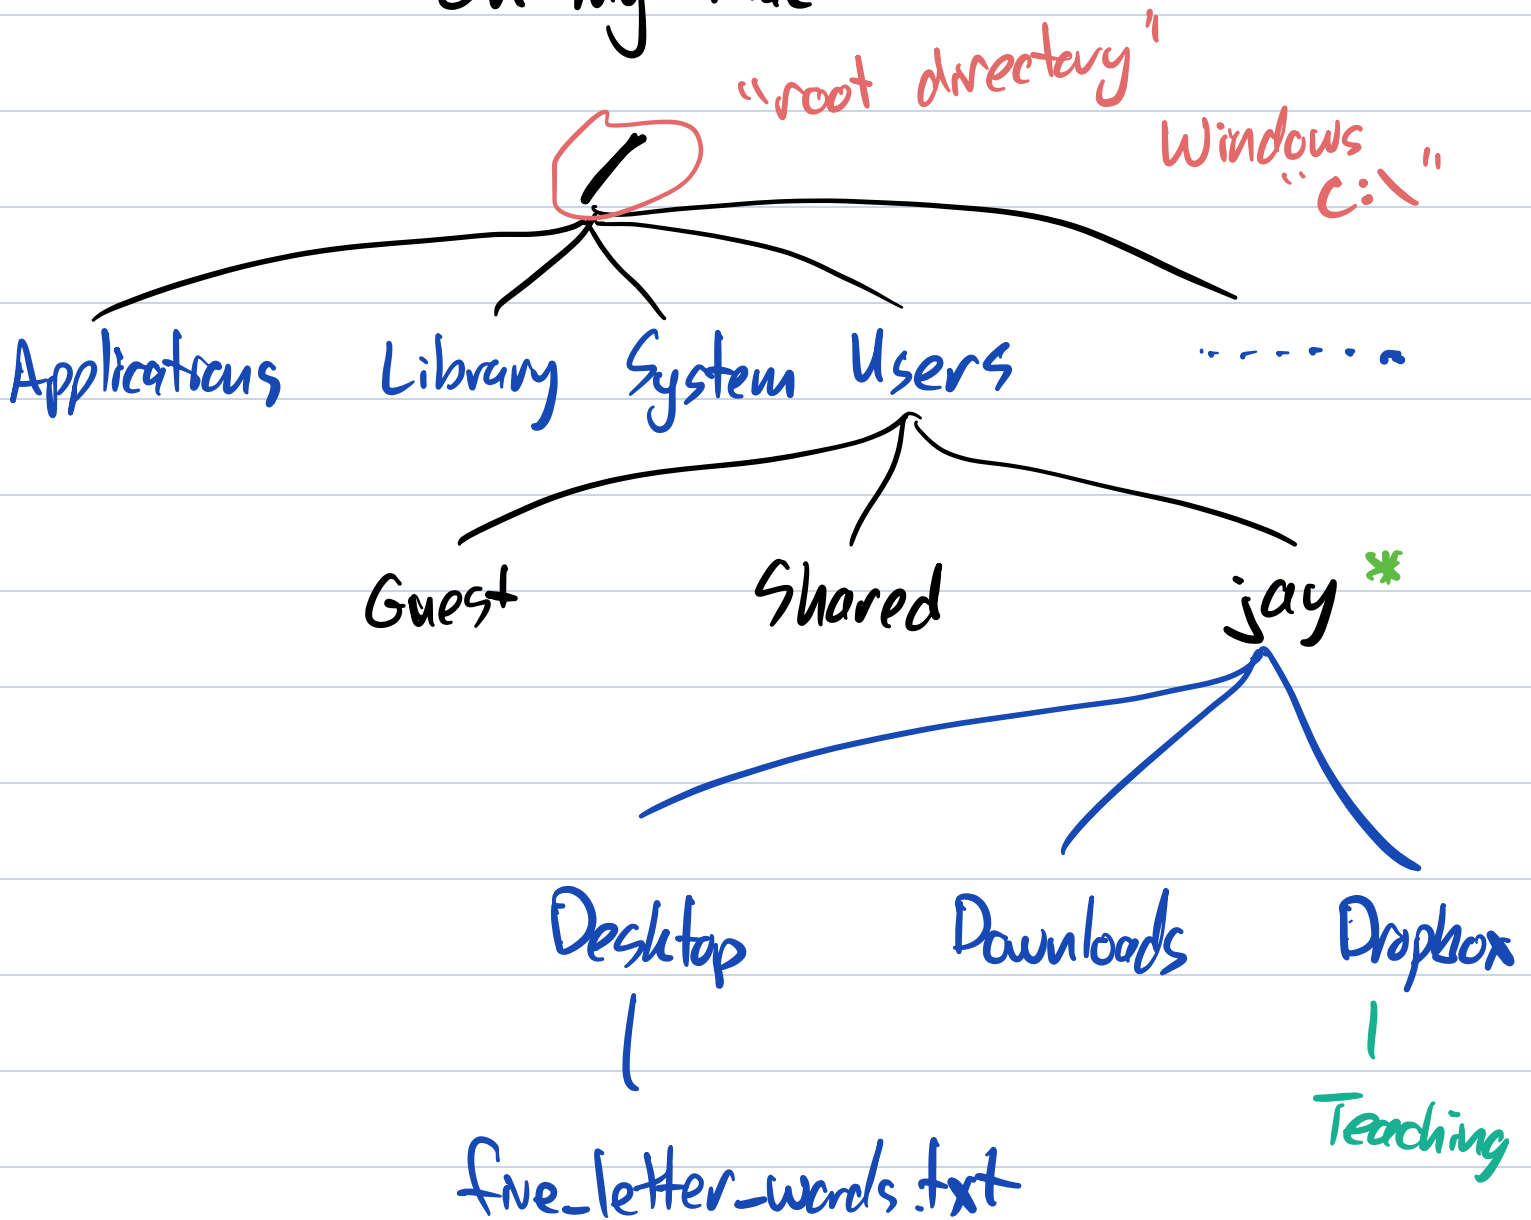 on my Mac
"root directory"
/
Windows
"C:\"
Applications Library System Users ......
Guest Shared jay *
Desktop Downloads Dropbox
Teaching
five_letter_words.txt